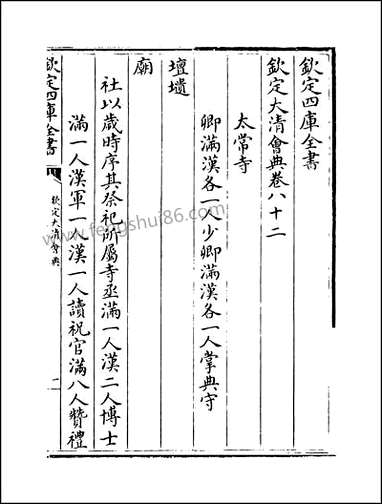 欽定四庫全書
欽定大清會典卷八十二
太常寺
卿滿漢各一人少卿滿漢各一人掌典守
壇壝
廟
社以歲時序其祭祀所屬寺丞滿一人漢二人博士
滿一人漢軍一人漢一人讀祝官滿八人贊禮
欽定四庫全書
欽定大清會典
一
www.fengshui86.com